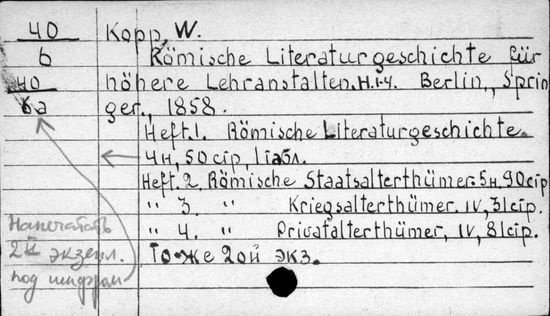 40
6
40
6a
Kopp, W.
Römische Literaturgeschichte für
höhere Lehranstalten. H. 1-4. Berlin, Sprin
ger., 1858.
Heft 1. Römische Literaturgeschichte.
4н, 50 cip, 1 табл.
Heft. 2. Römische Staatsalterthümer. 5н. 90 cip
" 3. " Kriegsalterthümer. IV, 31 cip.
" 4. " Privatalterthümer, IV, 81 cip.
То-же 2ой экз.
Напечатать
2й экземпл.
под шифром